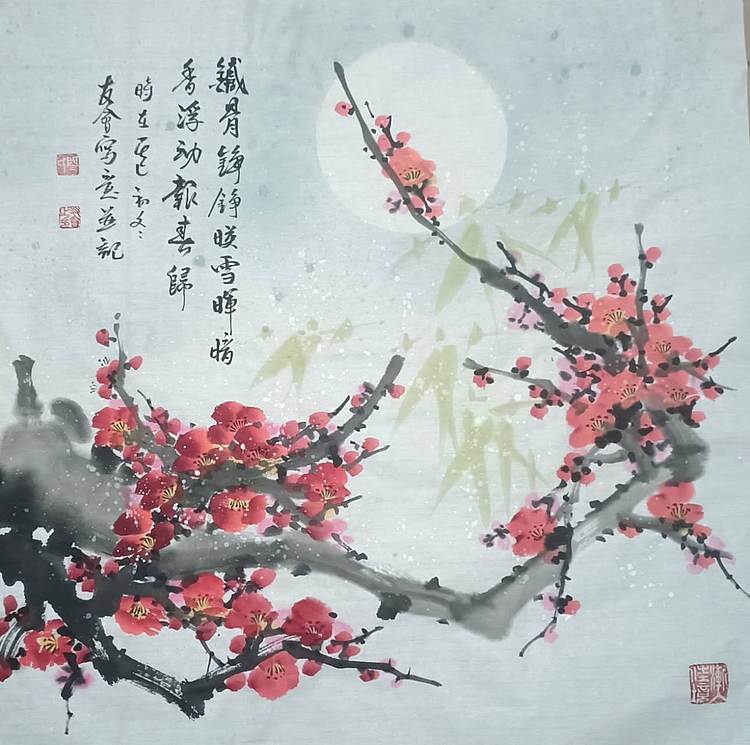 鐵骨錚錚映雪暉暗
香浮動報春歸
時在乙巳初冬
友會寫意並記